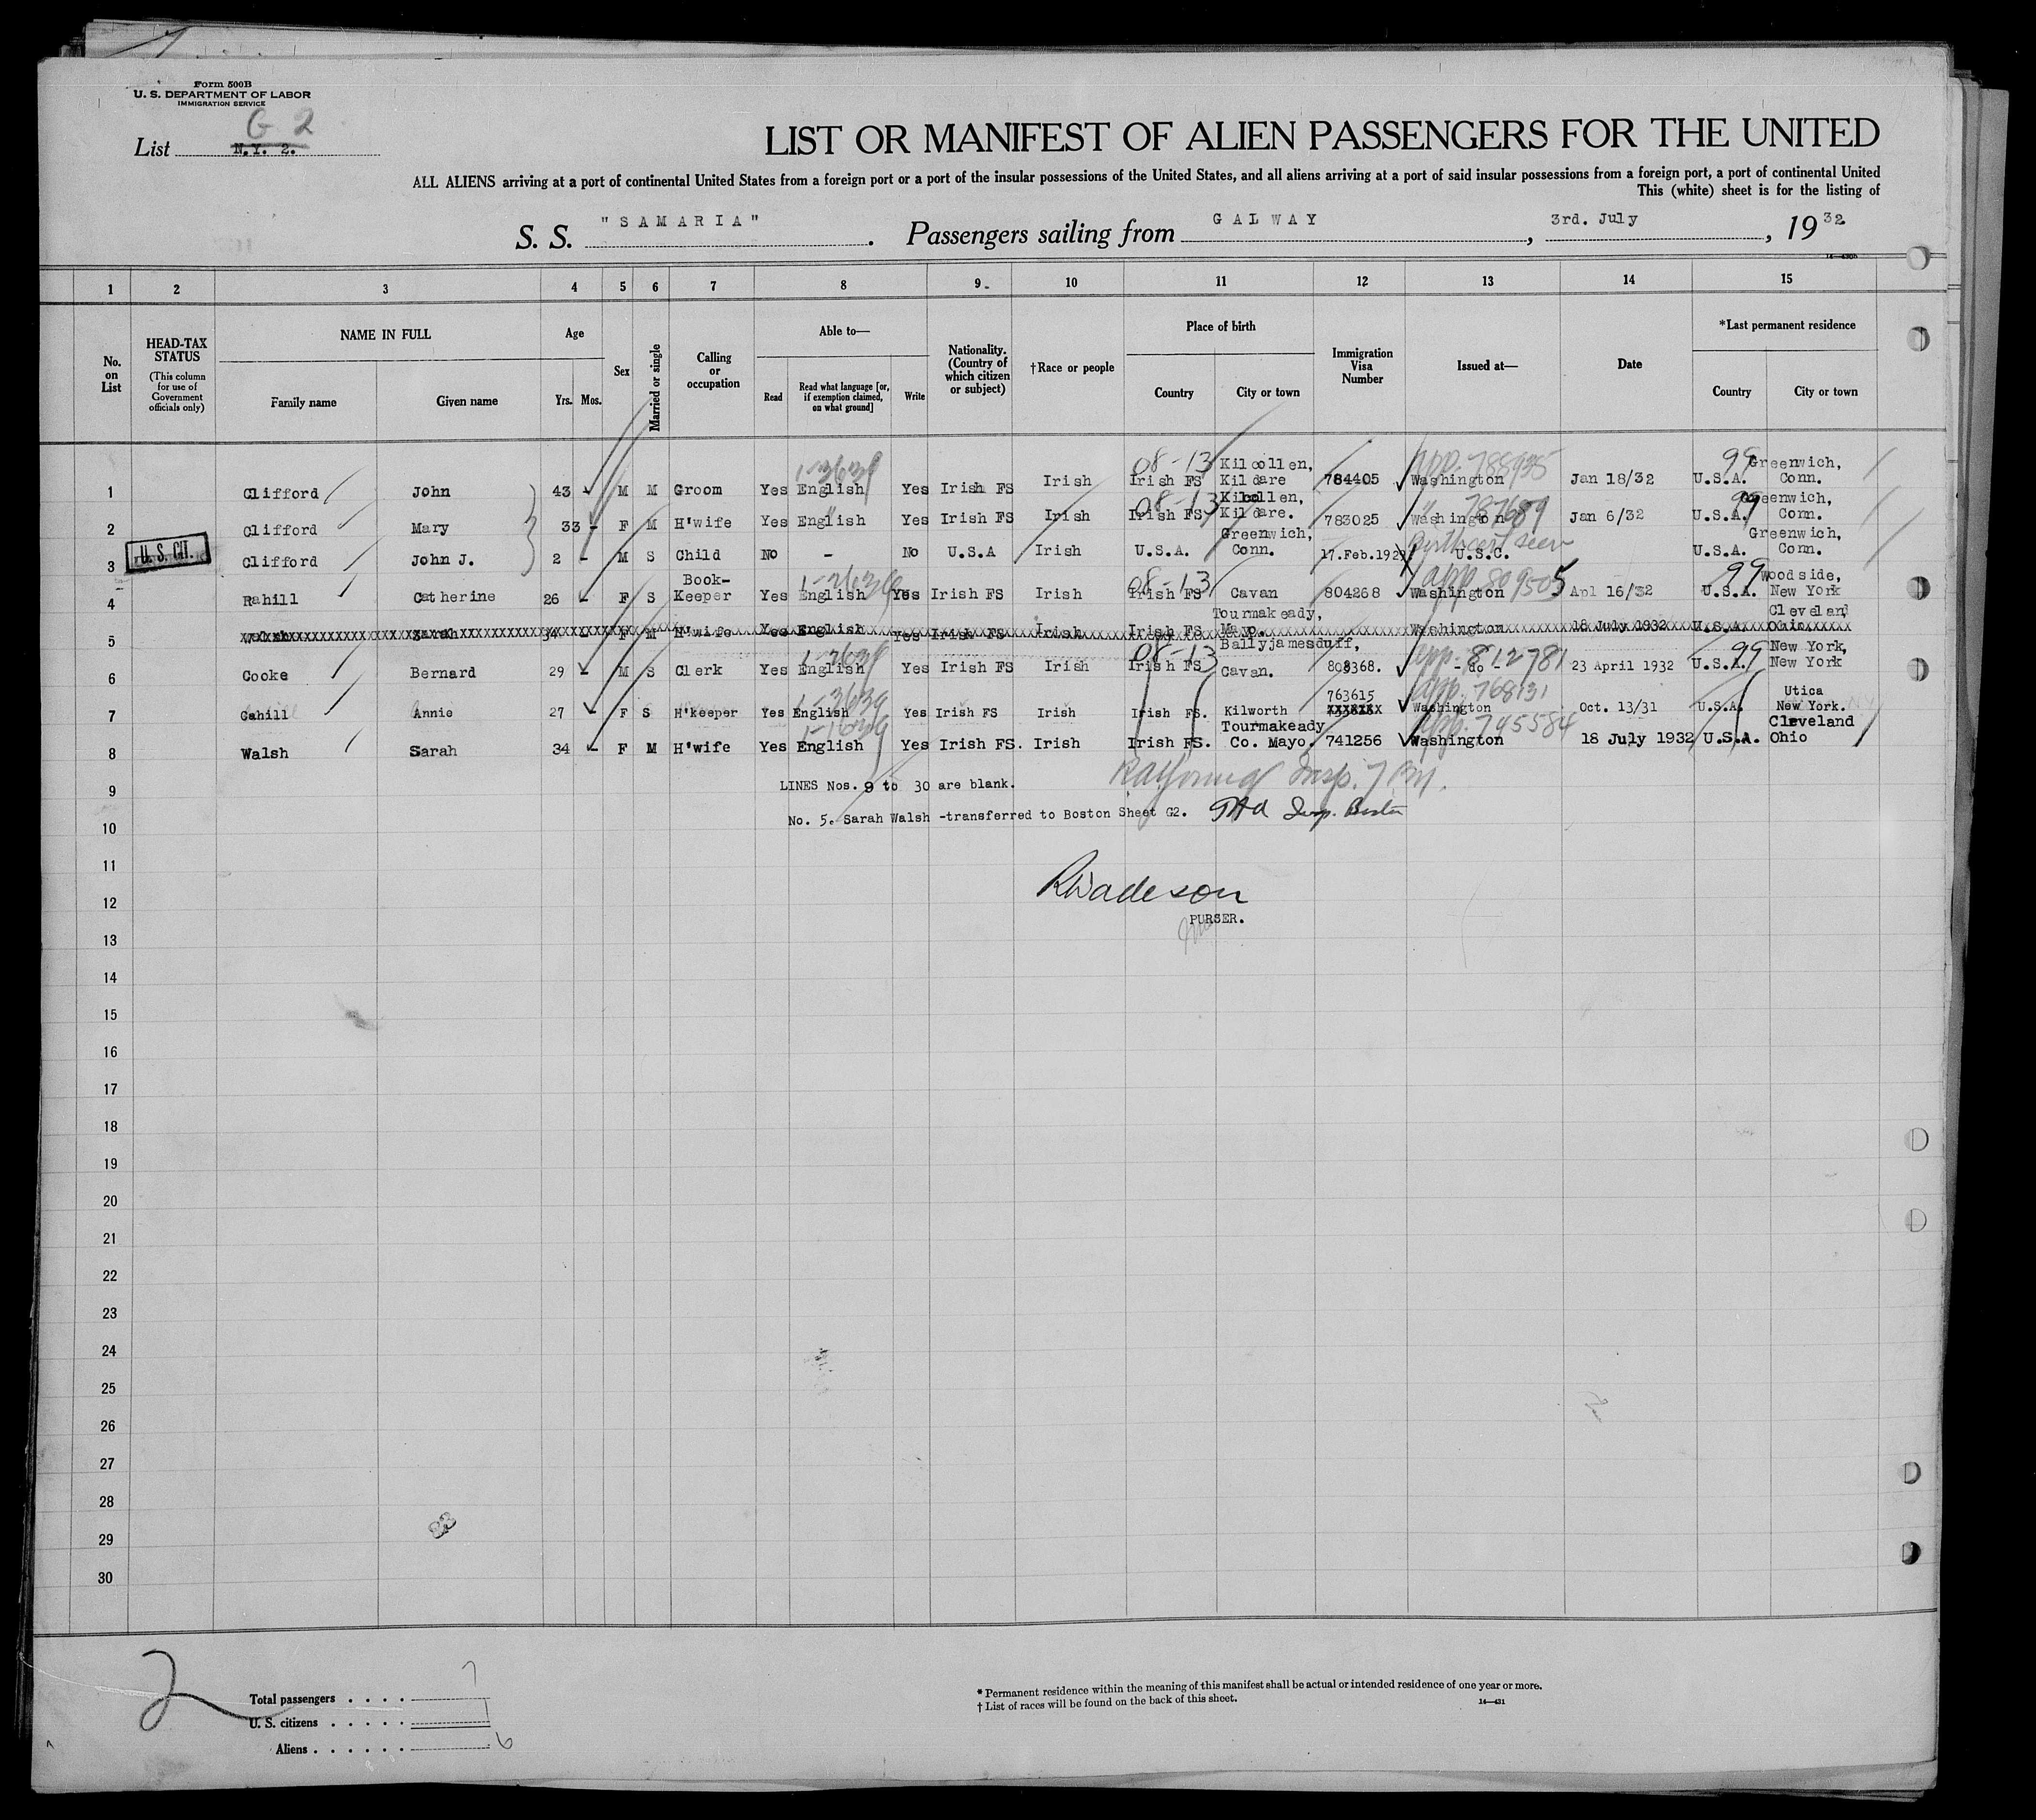 Form 500B
U. S. DEPARTMENT OF LABOR
IMMIGRATION SERVICE
G 2
List N.Y. 2.
LIST OR MANIFEST OF ALIEN PASSENGERS FOR THE UNITED
ALL ALIENS arriving at a port of continental United States from a foreign port or a port of the insular possessions of the United States, and all aliens arriving at a port of said insular possessions from a foreign port, a port of continental United
This (white) sheet is for the listing of
S. S. "SAMARIA". Passengers sailing from GALWAY, 3rd. July, 1932
1 2 3 4 5 6 7 8 9 10 11 12 13 14 15
No. on List
HEAD-TAX STATUS
(This column for use of Government officials only)
NAME IN FULL
Family name Given name
Age
Yrs. Mos.
Sex
Married or single
Calling or occupation
Able to—
Read Read what language [or, if exemption claimed, on what ground] Write
Nationality. (Country of which citizen or subject)
†Race or people
Place of birth
Country City or town
Immigration Visa Number
Issued at—
Date
*Last permanent residence
Country City or town
1 Clifford John 43 M M Groom Yes English Yes Irish FS Irish 08-13 Irish FS Kilcollen, Kildare 784405 Washington Jan 18/32 99 U.S.A. Greenwich, Conn.
2 Clifford Mary 33 - F M H'wife Yes English Yes Irish FS Irish 08-13 Irish FS Kilcollen, Kildare. 783025 Washington 787689 Jan 6/32 99 U.S.A. Greenwich, Conn.
3 U. S. CIT. Clifford John J. 2 - M S Child No - No U.S.A Irish U.S.A. Greenwich, Conn. 17.Feb.1929 Birth cert seen U.S.C. U.S.A. Greenwich, Conn.
4 Rahill Catherine 26 - F S Book-Keeper Yes English Yes Irish FS Irish 08-13 Irish FS Cavan 804268 app 809505 Washington Apl 16/32 99 U.S.A. Woodside, New York
5 Walsh Sarah 34 - F M H'wife Yes English Yes Irish FS Irish Irish FS Tourmakeady, Mayo. Washington 18 July 1932 U.S.A. Cleveland Ohio
6 Cooke Bernard 29 - M S Clerk Yes English Yes Irish FS Irish 08-13 Irish FS Ballyjamesduff, Cavan. 808368. app. 812781 - do - 23 April 1932 99 U.S.A. New York, New York
7 Cahill Annie 27 - F S H'keeper Yes English Yes Irish FS Irish Irish FS. Kilworth 763615 app. 768131 Washington Oct. 13/31 U.S.A. Utica New York.
8 Walsh Sarah 34 - F M H'wife Yes English Yes Irish FS. Irish Irish FS. Tourmakeady Co. Mayo. 741256 app. 745584 Washington 18 July 1932 U.S.A. Cleveland Ohio
9 LINES Nos. 9 to 30 are blank.
10 No. 5. Sarah Walsh -transferred to Boston Sheet G2. Insp. Boston
11
12
PURSER.
13
14
15
16
17
18
19
20
21
22
23
24
25
26
27
28
29
30
2
Total passengers . . . . 7
U. S. citizens . . . . . 1
Aliens . . . . . . 6
* Permanent residence within the meaning of this manifest shall be actual or intended residence of one year or more.
† List of races will be found on the back of this sheet.
14—431